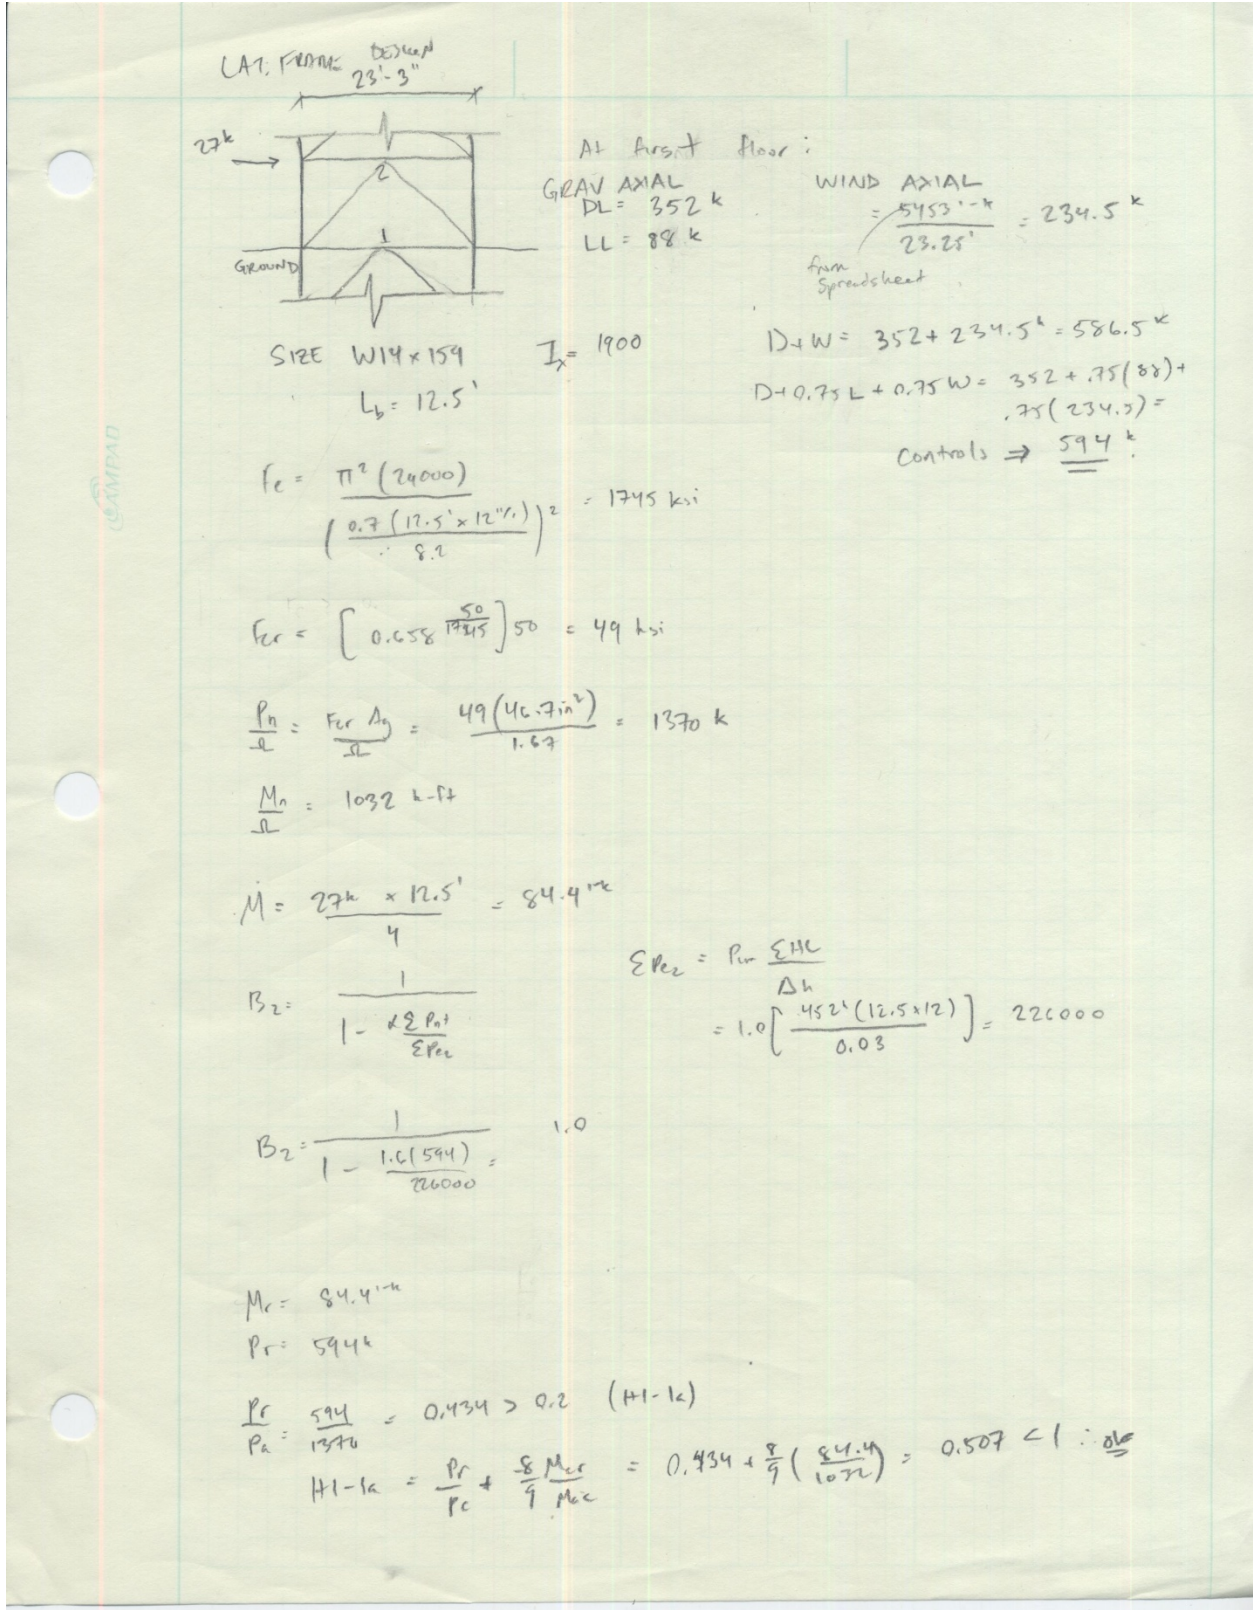 LAT. FRAME DESIGN
23'-3"
27k
2
1
GROUND
At first floor:
GRAV AXIAL
DL = 352 k
LL = 88 k
WIND AXIAL
= 5453'-k / 23.25' = 234.5 k
from
spreadsheet
SIZE W14×159 Ix = 1900
Lb = 12.5'
D+W = 352 + 234.5k = 586.5k
D+0.75L + 0.75W = 352 + .75(88) +
.75(234.5) =
Controls ⇒ 594 k
Fe = π² (29000) / (0.7 (12.5' × 12"/') / 8.2)² = 1745 ksi
Fcr = [0.658^(50/1745)] 50 = 49 ksi
Pn/Ω = Fcr Ag/Ω = 49(46.7in²)/1.67 = 1370 k
Mn/Ω = 1032 k-ft
M = 27k × 12.5' / 4 = 84.4'-k
ΣPe2 = Rm ΣHL/Δh
B2 = 1 / (1 - αΣPnt/ΣPe2)
= 1.0 [452k(12.5×12) / 0.03] = 226000
B2 = 1 / (1 - 1.6(594)/226000) = 1.0
Mr = 84.4'-k
Pr = 594k
Pr/Pa = 594/1370 = 0.434 > 0.2 (H1-1a)
H1-1a = Pr/Pc + 8/9 Mcr/Mcx = 0.434 + 8/9 (84.4/1032) = 0.507 < 1 ∴ ok
CAMPAD